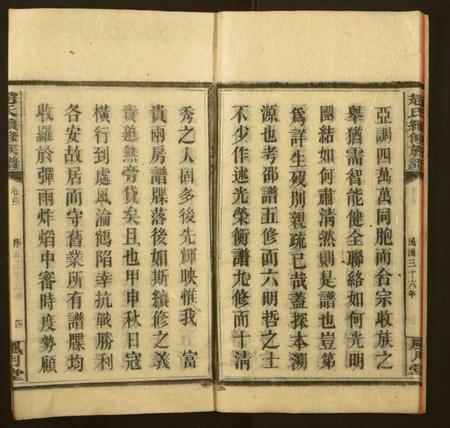 亞調四萬萬同胞而合宗收族之
舉猶需智能健全聯絡如何光明
團結如何肅清然則是譜也豈第
為詳生歿別親疏已哉蓋探本溯
源也考邵譜五修而六明哲之士
不少作述光榮衡譜九修而十清
趙氏續修族譜
民國三十六年
鳳月堂
秀之人固多後先輝映惟我 富
貴兩房譜牒落後如斯續修之義
責絶無旁貸矣且也甲申秋日寇
橫行到處風淪鶴陷幸抗戰勝利
各安故居而守舊業所有譜牒均
收羅於彈雨炸熖中審時度勢顧
趙氏續修族譜
卷首
序
四
鳳月堂